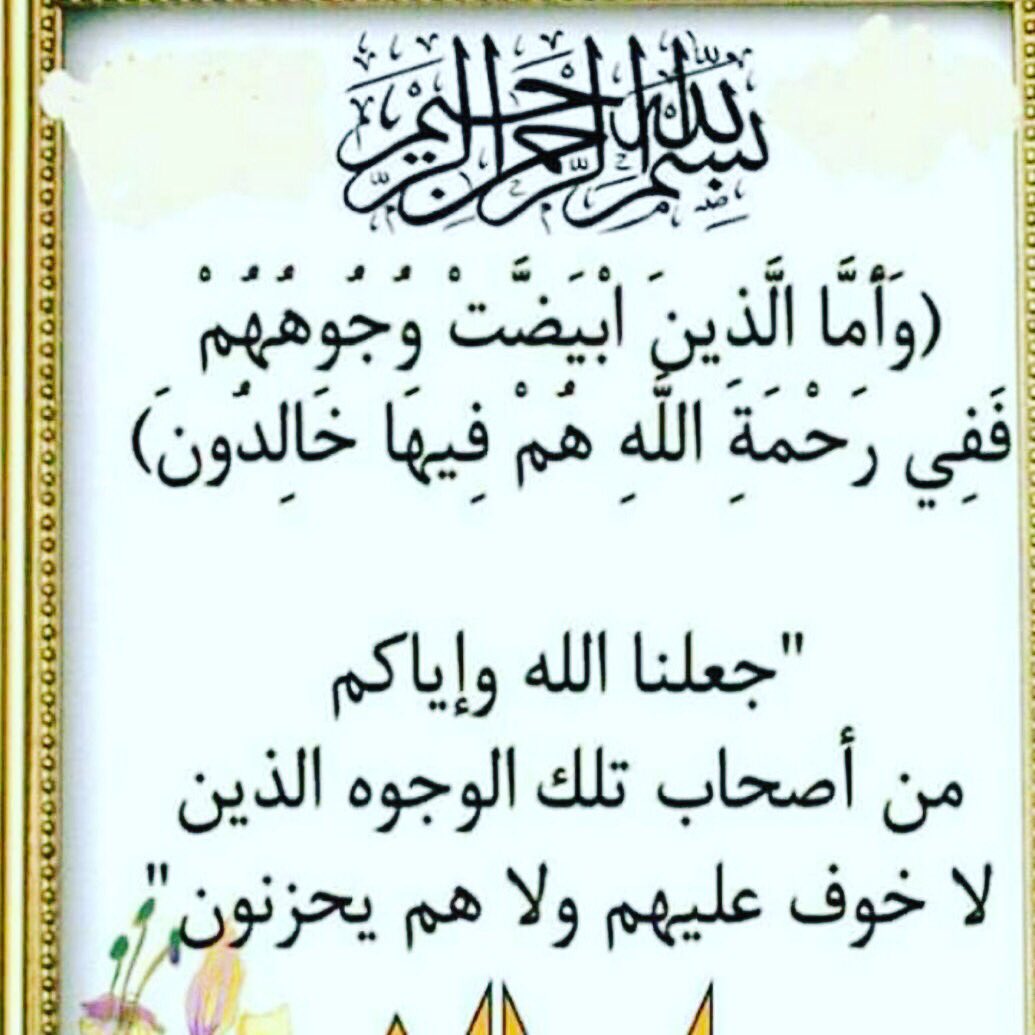 بسم الله الرحمن الرحيم
(وَأَمَّا الَّذِينَ ابْيَضَّتْ وُجُوهُهُمْ
فَفِي رَحْمَةِ اللَّهِ هُمْ فِيهَا خَالِدُونَ)
"جعلنا الله وإياكم
من أصحاب تلك الوجوه الذين
لا خوف عليهم ولا هم يحزنون"